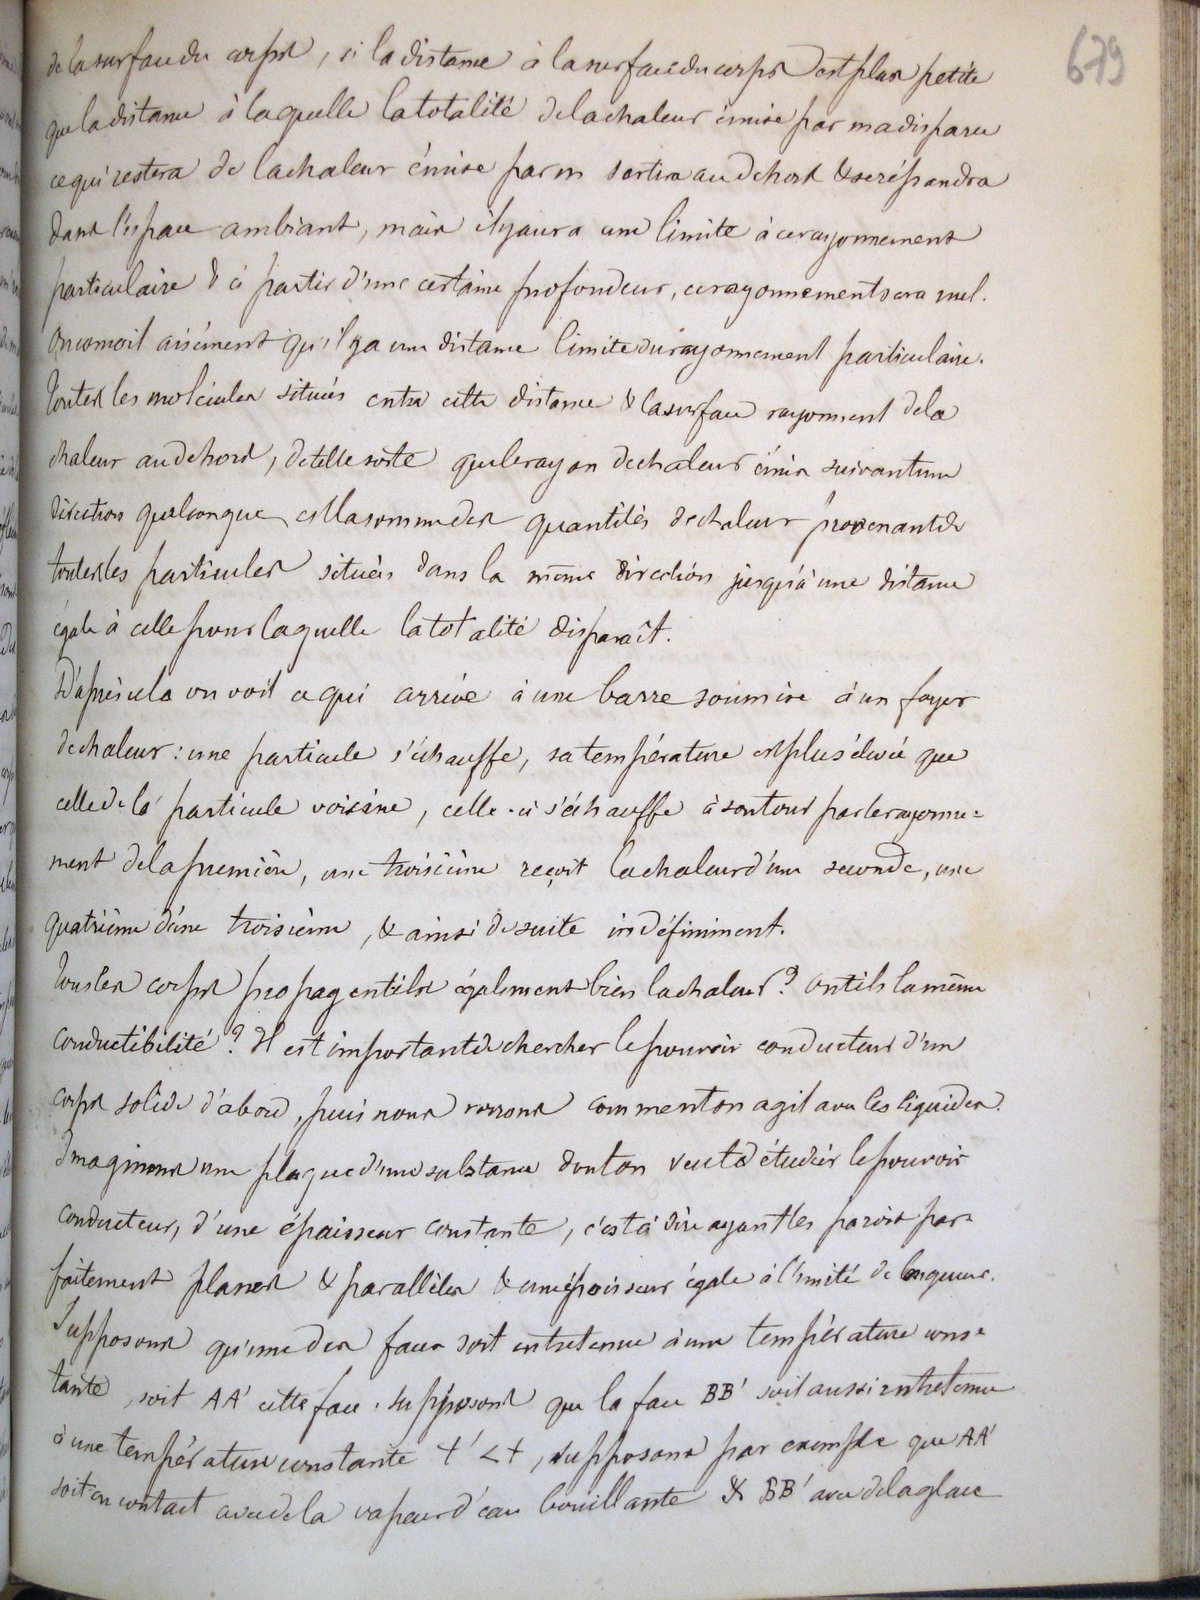 679
de la surface du corps, si la distance à la surface du corps est plus petite
que la distance à laquelle la totalité de la chaleur émise par m a disparu
ce qui restera de la chaleur émise par m sortira au dehors & se répandra
dans l'espace ambiant, mais il y aura une limite à ce rayonnement
particulaire & à partir d'une certaine profondeur, ce rayonnement sera nul.
On conçoit aisément qu'il y a une distance limite du rayonnement particulaire.
Toutes les molécules situées entre cette distance & la surface rayonnent de la
chaleur au dehors, de telle sorte que le rayon de chaleur émis suivant une
direction quelconque est la somme des quantités de chaleur provenant de
toutes les particules situées dans la même direction jusqu'à une distance
égale à celle pour laquelle la totalité disparaît.
D'après cela on voit ce qui arrive à une barre soumise à un foyer
de chaleur : une particule s'échauffe, sa température est plus élevée que
celle de la particule voisine, celle-ci s'échauffe à son tour par le rayonne=
ment de la première, une troisième reçoit la chaleur d'une seconde, une
quatrième d'une troisième, & ainsi de suite indéfiniment.
Tous les corps propagent ils également bien la chaleur ? ont ils la même
conductibilité ? Il est important de chercher le pouvoir conducteur d'un
corps solide d'abord, puis nous verrons comment on agit avec les liquides.
Imaginons une plaque d'une substance dont on veut étudier le pouvoir
conducteur, d'une épaisseur constante, c'est à dire ayant les parois par=
faitement planes & parallèles & une épaisseur égale à l'unité de longueur.
Supposons qu'une des faces soit entretenue à une température cons=
tante, soit AA' cette face. Supposons que la face BB' soit aussi entretenue
à une température constante t' < t, supposons par exemple que AA'
soit en contact avec de la vapeur d'eau bouillante & BB' avec de la glace